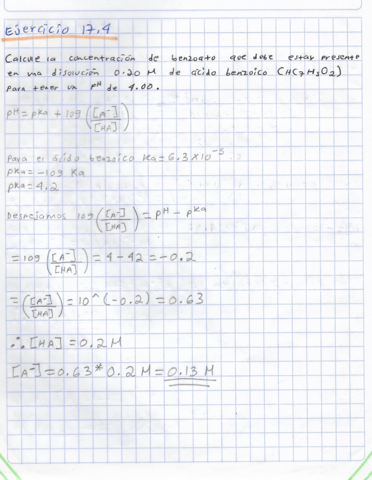 Ejercicio 17.4
Calcule la concentración de benzoato que debe estar presente
en una disolución 0.20 M de ácido benzoico (HC7H5O2)
para tener un pH de 4.00.
pH = pka + log ([A-]/[HA])
Para el ácido benzoico Ka = 6.3 x 10^-5
pKa = -log Ka
pKa = 4.2
Despejamos log ([A-]/[HA]) = pH - pKa
= log ([A-]/[HA]) = 4 - 42 = -0.2
= ([A-]/[HA]) = 10^(-0.2) = 0.63
∴ [HA] = 0.2 M
[A-] = 0.63 * 0.2 M = 0.13 M